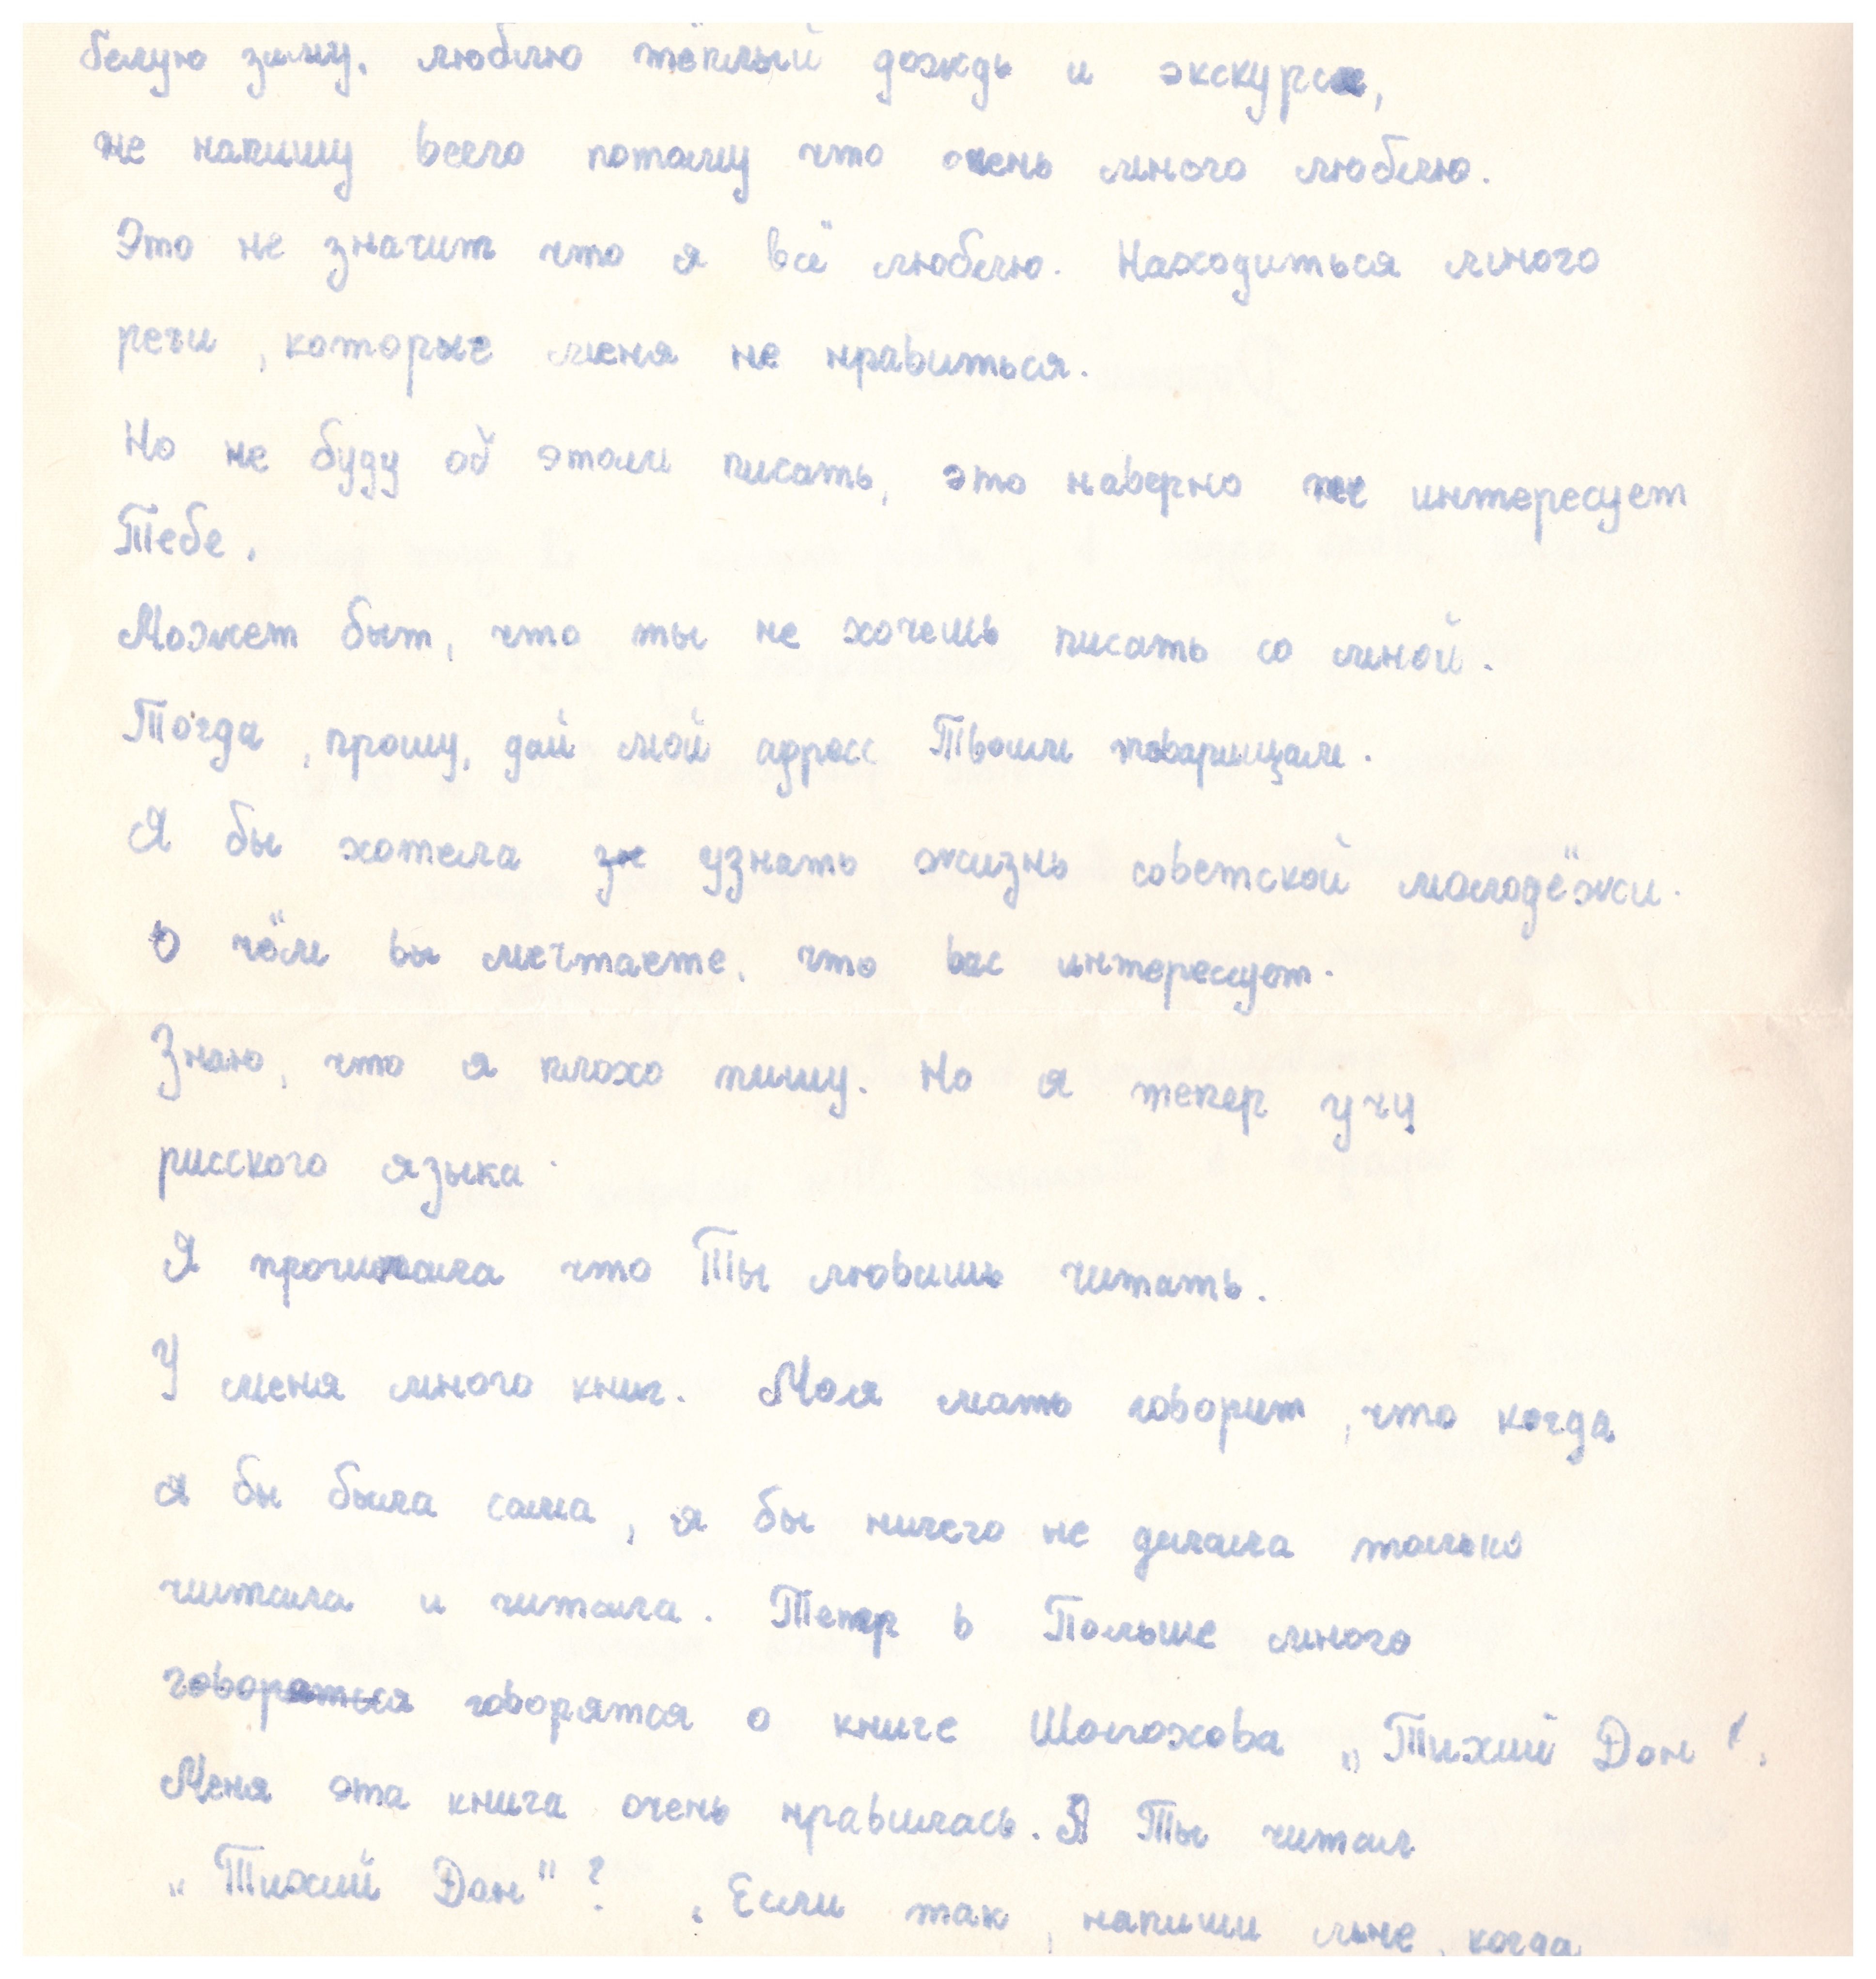 белую зиму, люблю тёплый дождь и экскурси,
не напишу всего потому что очень много люблю.
Это не значит что я всё люблю. Находиться много
речи, которые меня не нравиться.
Но не буду об этом писать, это наверно не интересует
Тебе.
Может быт, что ты не хочешь писать со мной.
Тогда, прошу, дай мой адресс Твоим товарищам.
Я бы хотела узнать жизнь советской молодёжи.
О чём вы мечтаете, что вас интересует.
Знаю, что я плохо пишу. Но я тепер учу
русского языка.
Я прочитала что Ты любишь читать.
У меня много книг. Моя мать говорит, что когда
я бы была сама, я бы ничего не делала только
читала и читала. Тепер в Польше много
говорятся говорятся о книге Шолохова „Тихий Дон".
Меня эта книга очень нравилась. А Ты читал
„Тихий Дон"? Если так, напиши мне, когда